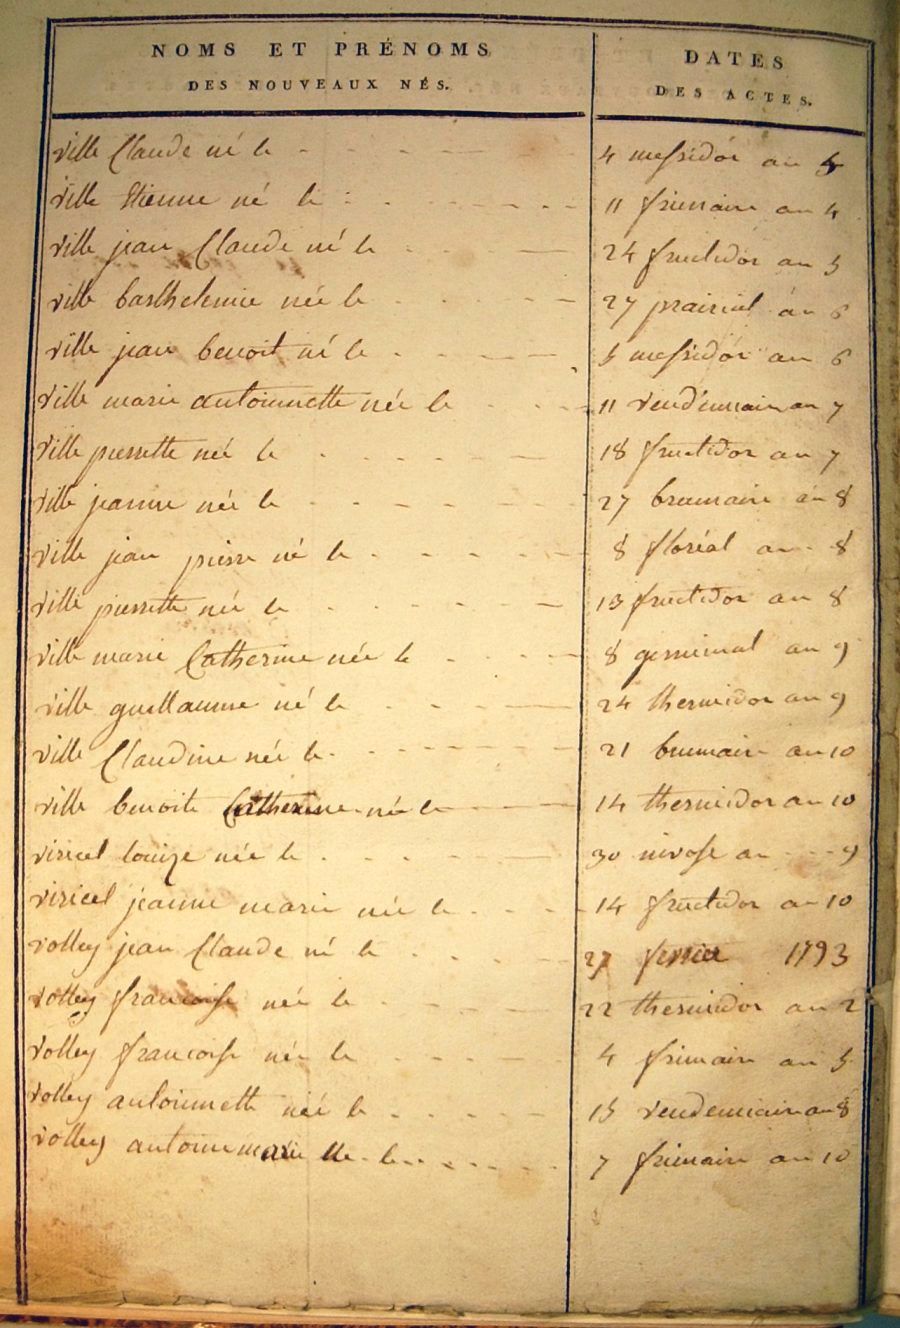 NOMS ET PRÉNOMS
DES NOUVEAUX NÉS.
DATES
DES ACTES.
ville Claude né le 4 messidor an
ville Etienne né le 11 frimaire an 4
ville jean Claude né le 24 fructidor an 5
ville barthelemie née le 27 prairial an 6
ville jean benoit né le 5 messidor an 6
ville marie antoinnette née le 11 vendémiaire an 7
ville pierrette née le 18 fructidor an 7
ville jeanne née le 27 brumaire an 8
ville jean pierre né le 8 floréal an 8
ville pierrette née le 13 fructidor an 8
ville marie Catherine née le 8 germinal an 9
ville guillaume né le 24 thermidor an 9
ville Claudine née le 21 brumaire an 10
ville benoite Catherine née le 14 thermidor an 10
viricel louize née le 30 nivose an 9
viricel jeanne marie née le 14 fructidor an 10
volley jean Claude né le 27 fevrier 1793
volley francoise née le 22 thermidor an 2
volley francoise née le 4 frimaire an 5
volley antoinnette née le 15 vendemiaire an 8
volley antoine marie le 7 frimaire an 10